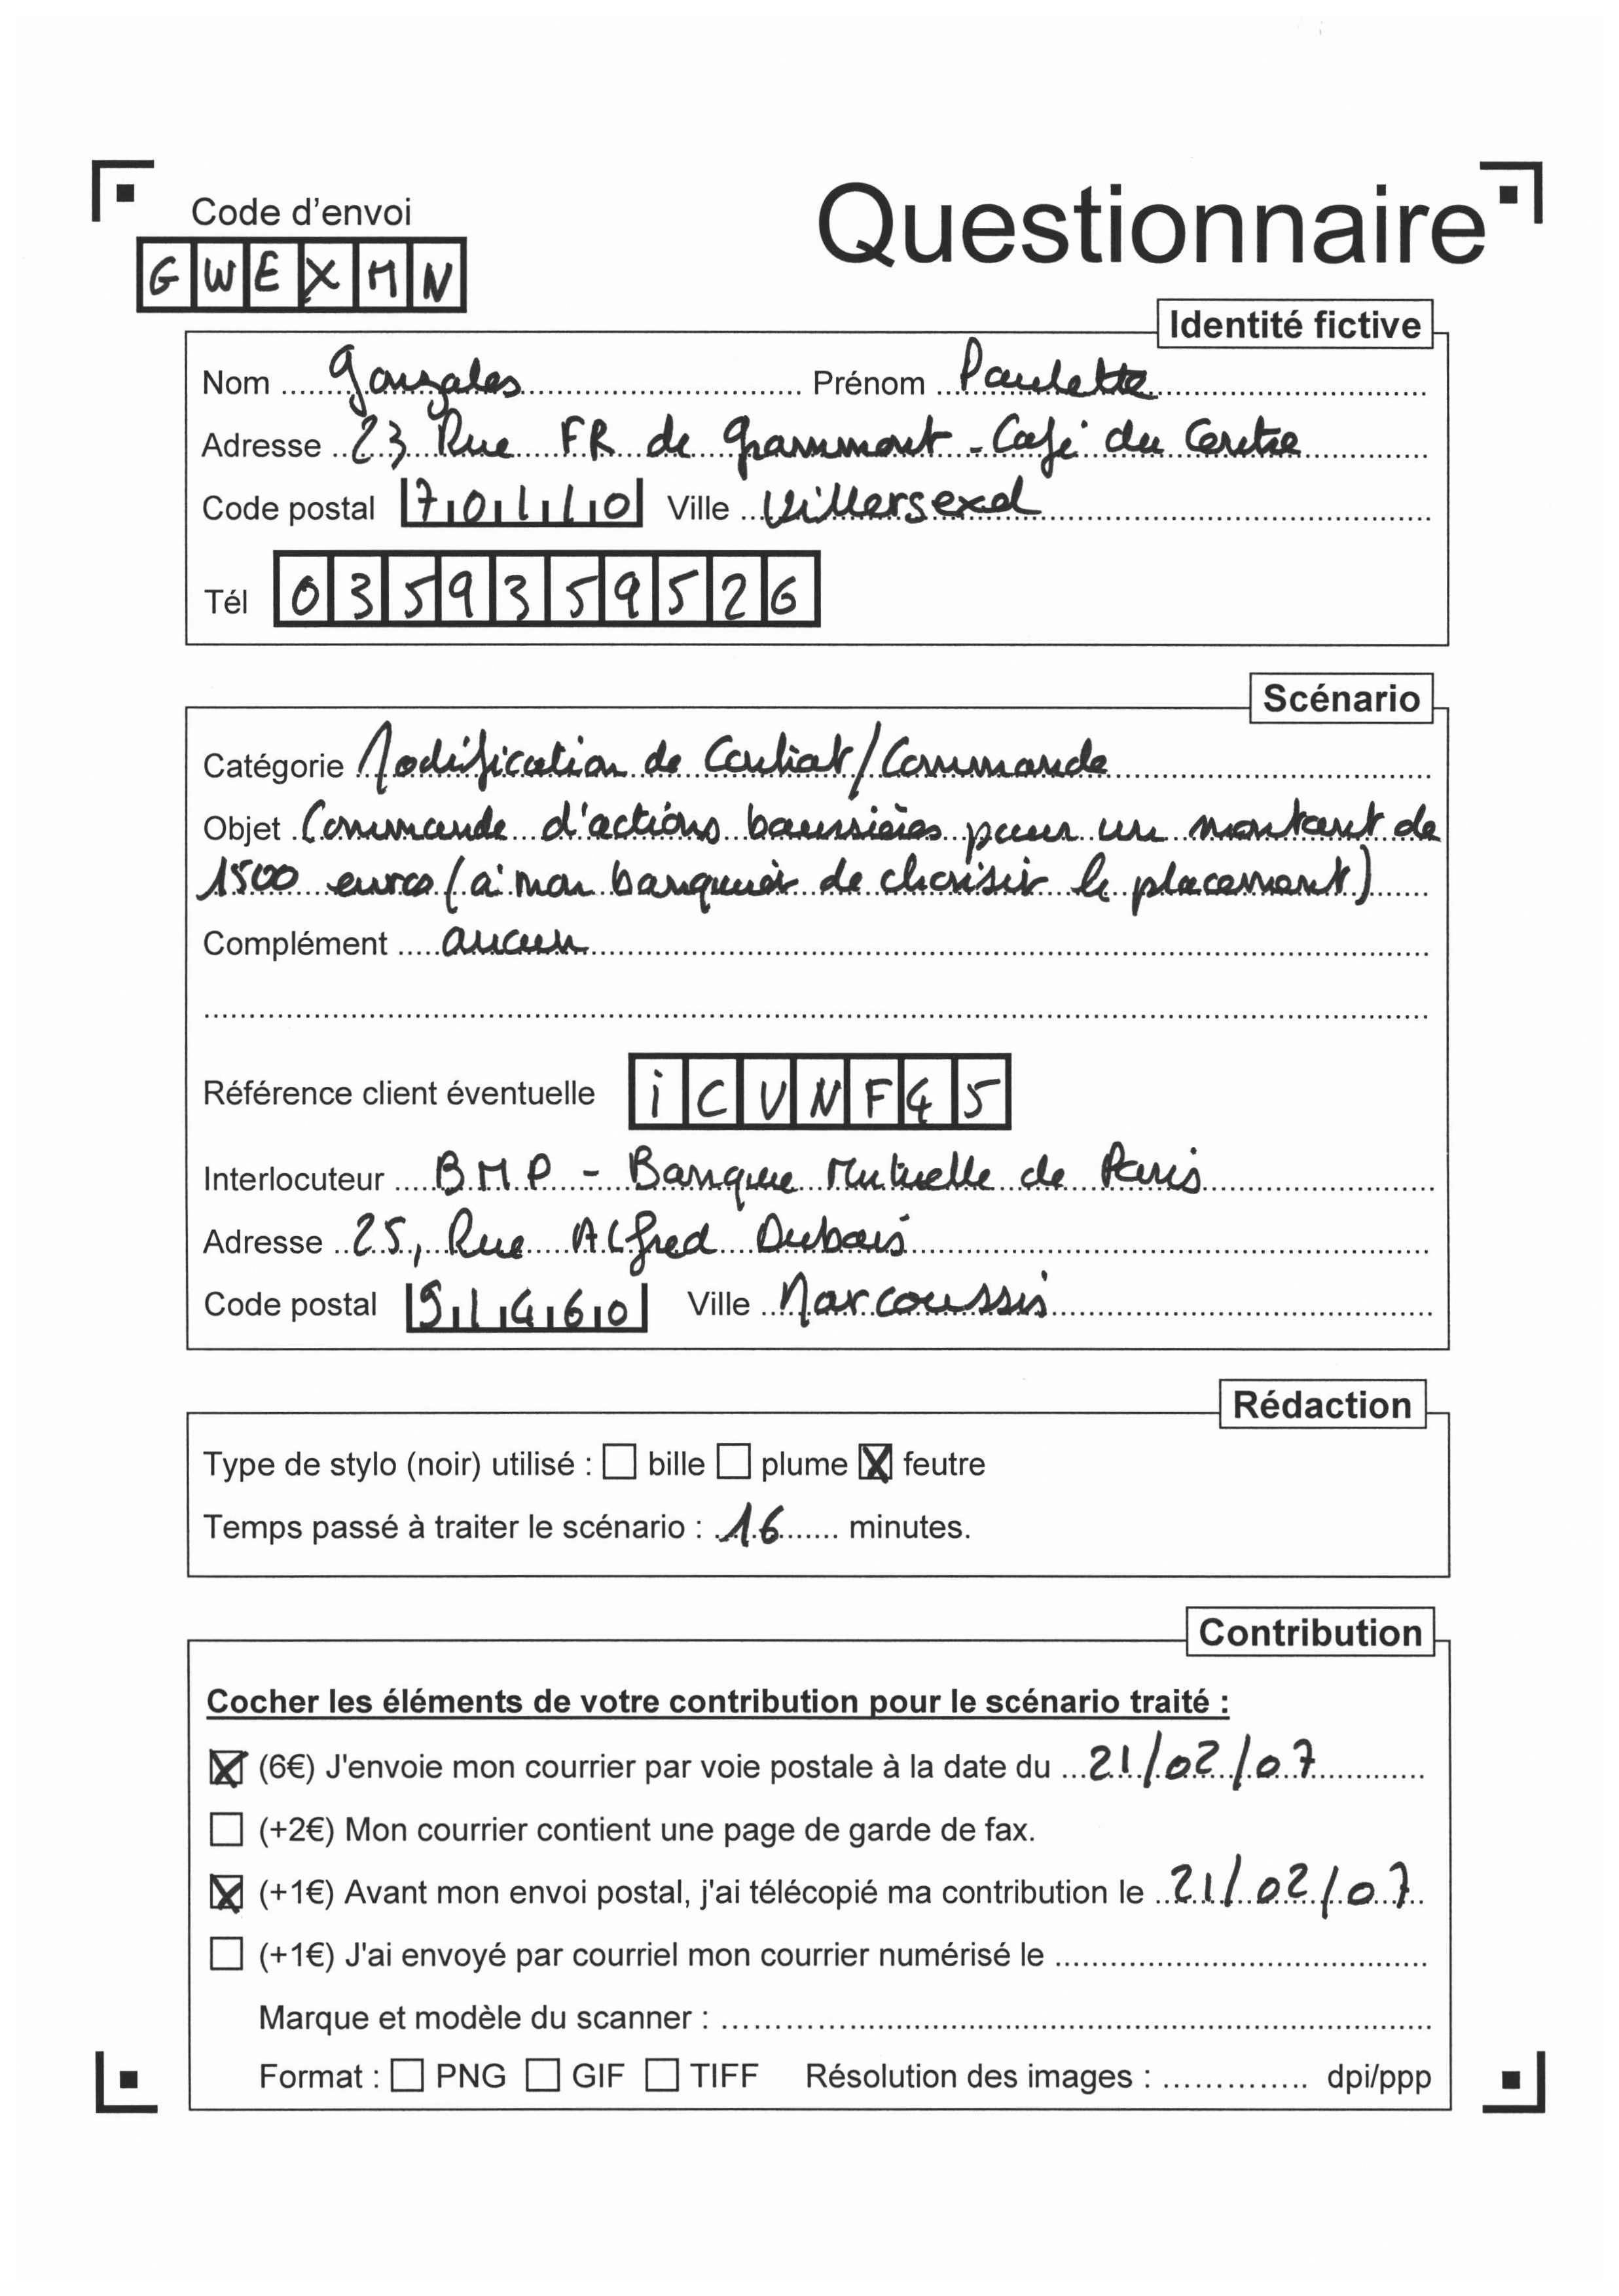 Code d'envoi
Questionnaire
GWEXMN
Identité fictive
Nom Gonzales Prénom Paulette
Adresse 23 Rue FR de Grammont - Café du Centre
Code postal 70110 Ville Villersexel
Tél 0359359526
Scénario
Catégorie Modification de Contrat/Commande
Objet Commande d'actions boursières pour un montant de
1500 euros (à mon banquier de choisir le placement)
Complément aucun
Référence client éventuelle iCVNF45
Interlocuteur BMP - Banque Mutuelle de Paris
Adresse 25, Rue Alfred Dubois
Code postal 91460 Ville Marcoussis
Rédaction
Type de stylo (noir) utilisé : ☐ bille ☐ plume ☒ feutre
Temps passé à traiter le scénario : 16 minutes.
Contribution
Cocher les éléments de votre contribution pour le scénario traité :
☒ (6€) J'envoie mon courrier par voie postale à la date du 21/02/07
☐ (+2€) Mon courrier contient une page de garde de fax.
☒ (+1€) Avant mon envoi postal, j'ai télécopié ma contribution le 21/02/07
☐ (+1€) J'ai envoyé par courriel mon courrier numérisé le
Marque et modèle du scanner :
Format : ☐ PNG ☐ GIF ☐ TIFF Résolution des images : dpi/ppp